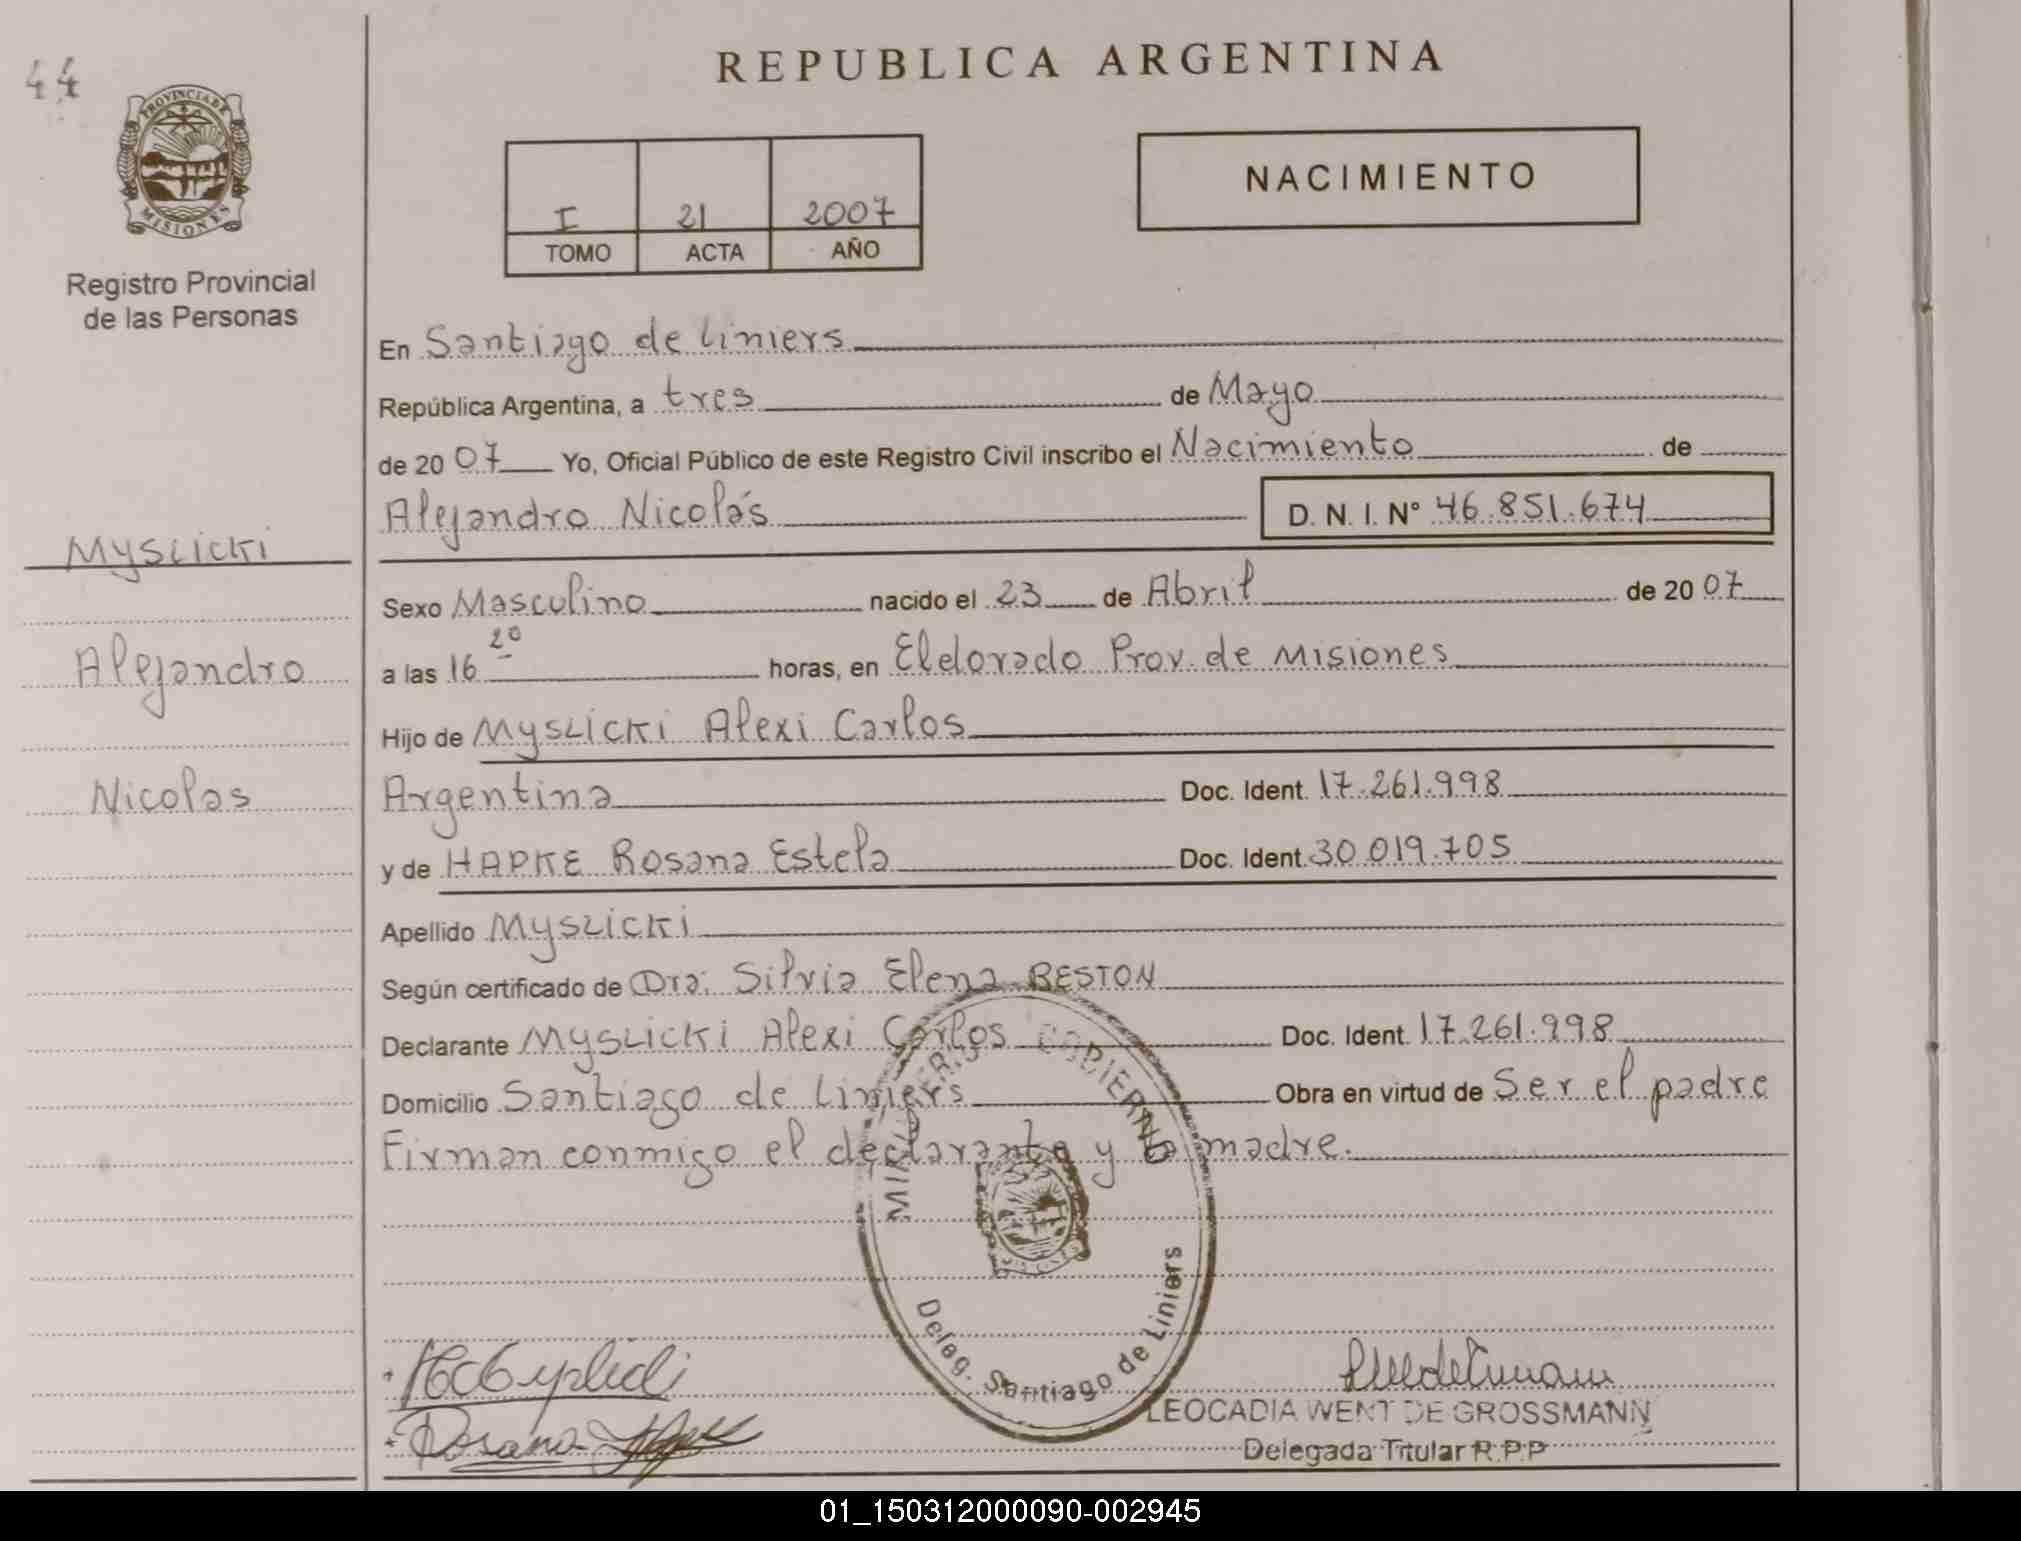 44
REPUBLICA ARGENTINA
PROVINCIA DE
MISIONES
Registro Provincial
de las Personas
I 21 2007
TOMO ACTA AÑO
NACIMIENTO
En Santiago de Liniers
República Argentina, a tres de Mayo
de 20 07 Yo, Oficial Público de este Registro Civil inscribo el Nacimiento de
Alejandro Nicolás D. N. I. Nº 46.851.674
Myslicki
Alejandro
Nicolas
Sexo Masculino nacido el 23 de Abril de 20 07
a las 16 20 horas, en Eldorado Prov. de Misiones
Hijo de Myslicki Alexi Carlos
Argentina Doc. Ident. 17.261.998
y de HAPKE Rosana Estela Doc. Ident. 30.019.705
Apellido Myslicki
Según certificado de Dra. Silvia Elena RESTON
Declarante Myslicki Alexi Carlos Doc. Ident. 17.261.998
Domicilio Santiago de Liniers Obra en virtud de Ser el padre
Firman conmigo el declarante y la madre.
MINISTERIO GOBIERNO
Deleg. Santiago de Liniers
Rosana
LEOCADIA WENT DE GROSSMANN
Delegada Titular R.P.P
01_150312000090-002945